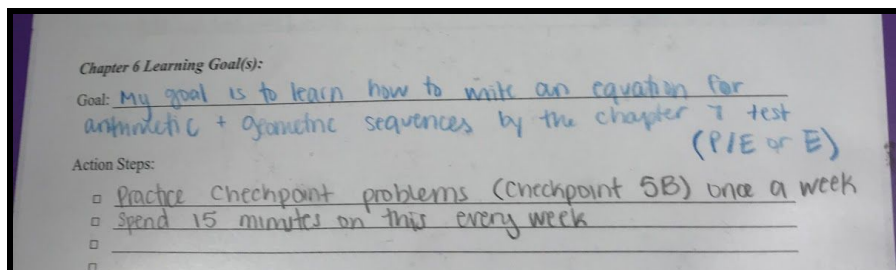 Chapter 6 Learning Goal(s):
Goal: My goal is to learn how to write an equation for
arithmetic + geometric sequences by the chapter 7 test
(P/E or E)
Action Steps:
Practice Checkpoint problems (Checkpoint 5B) once a week
Spend 15 minutes on this every week